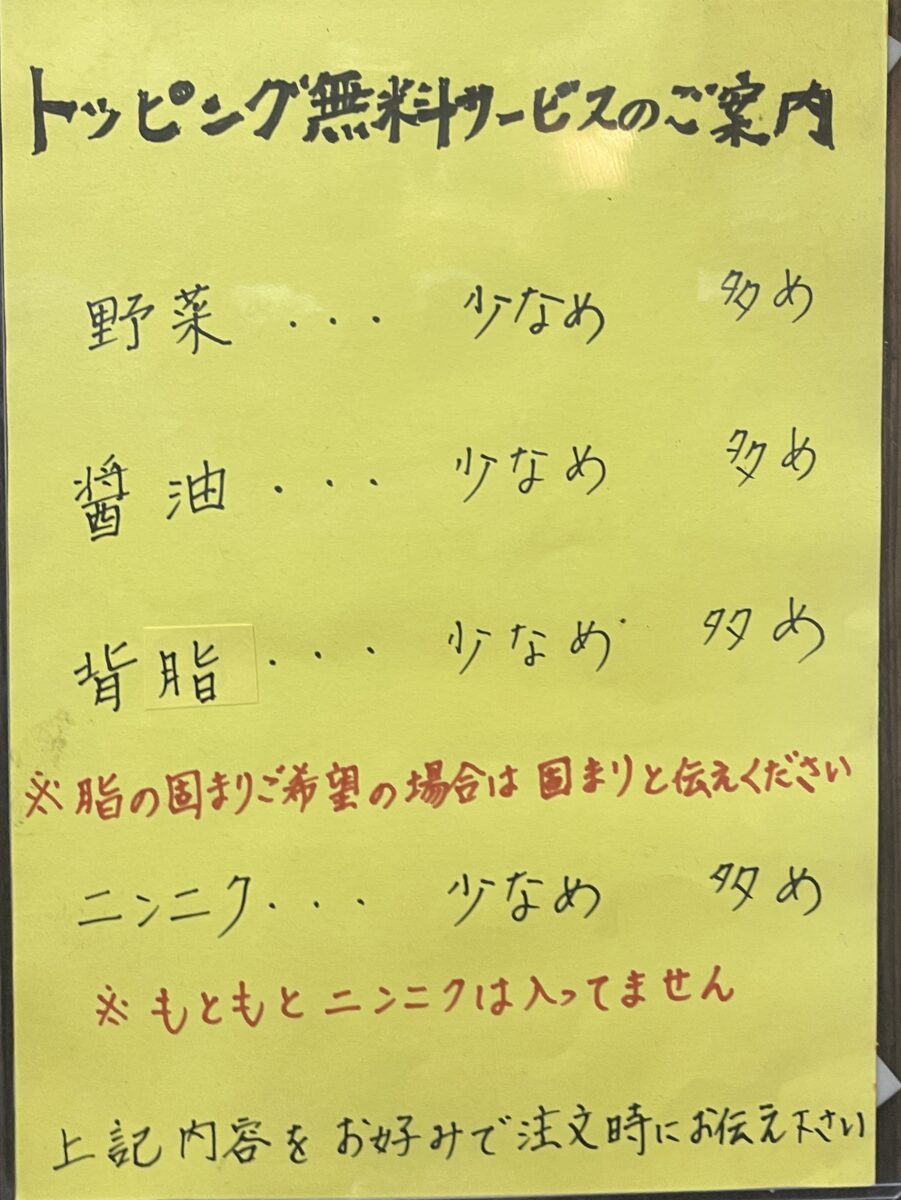 トッピング無料サービスのご案内
野菜・・・ 少なめ 多め
醤油・・・ 少なめ 多め
背脂・・・ 少なめ 多め
※脂の固まりご希望の場合は固まりと伝えください
ニンニク・・・ 少なめ 多め
※もともとニンニクは入ってません
上記内容をお好みで注文時にお伝え下さい